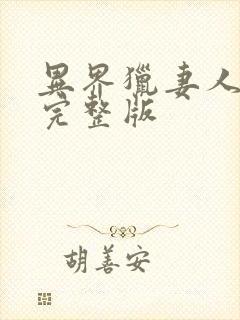 異界獵妻人
完整版
胡善安